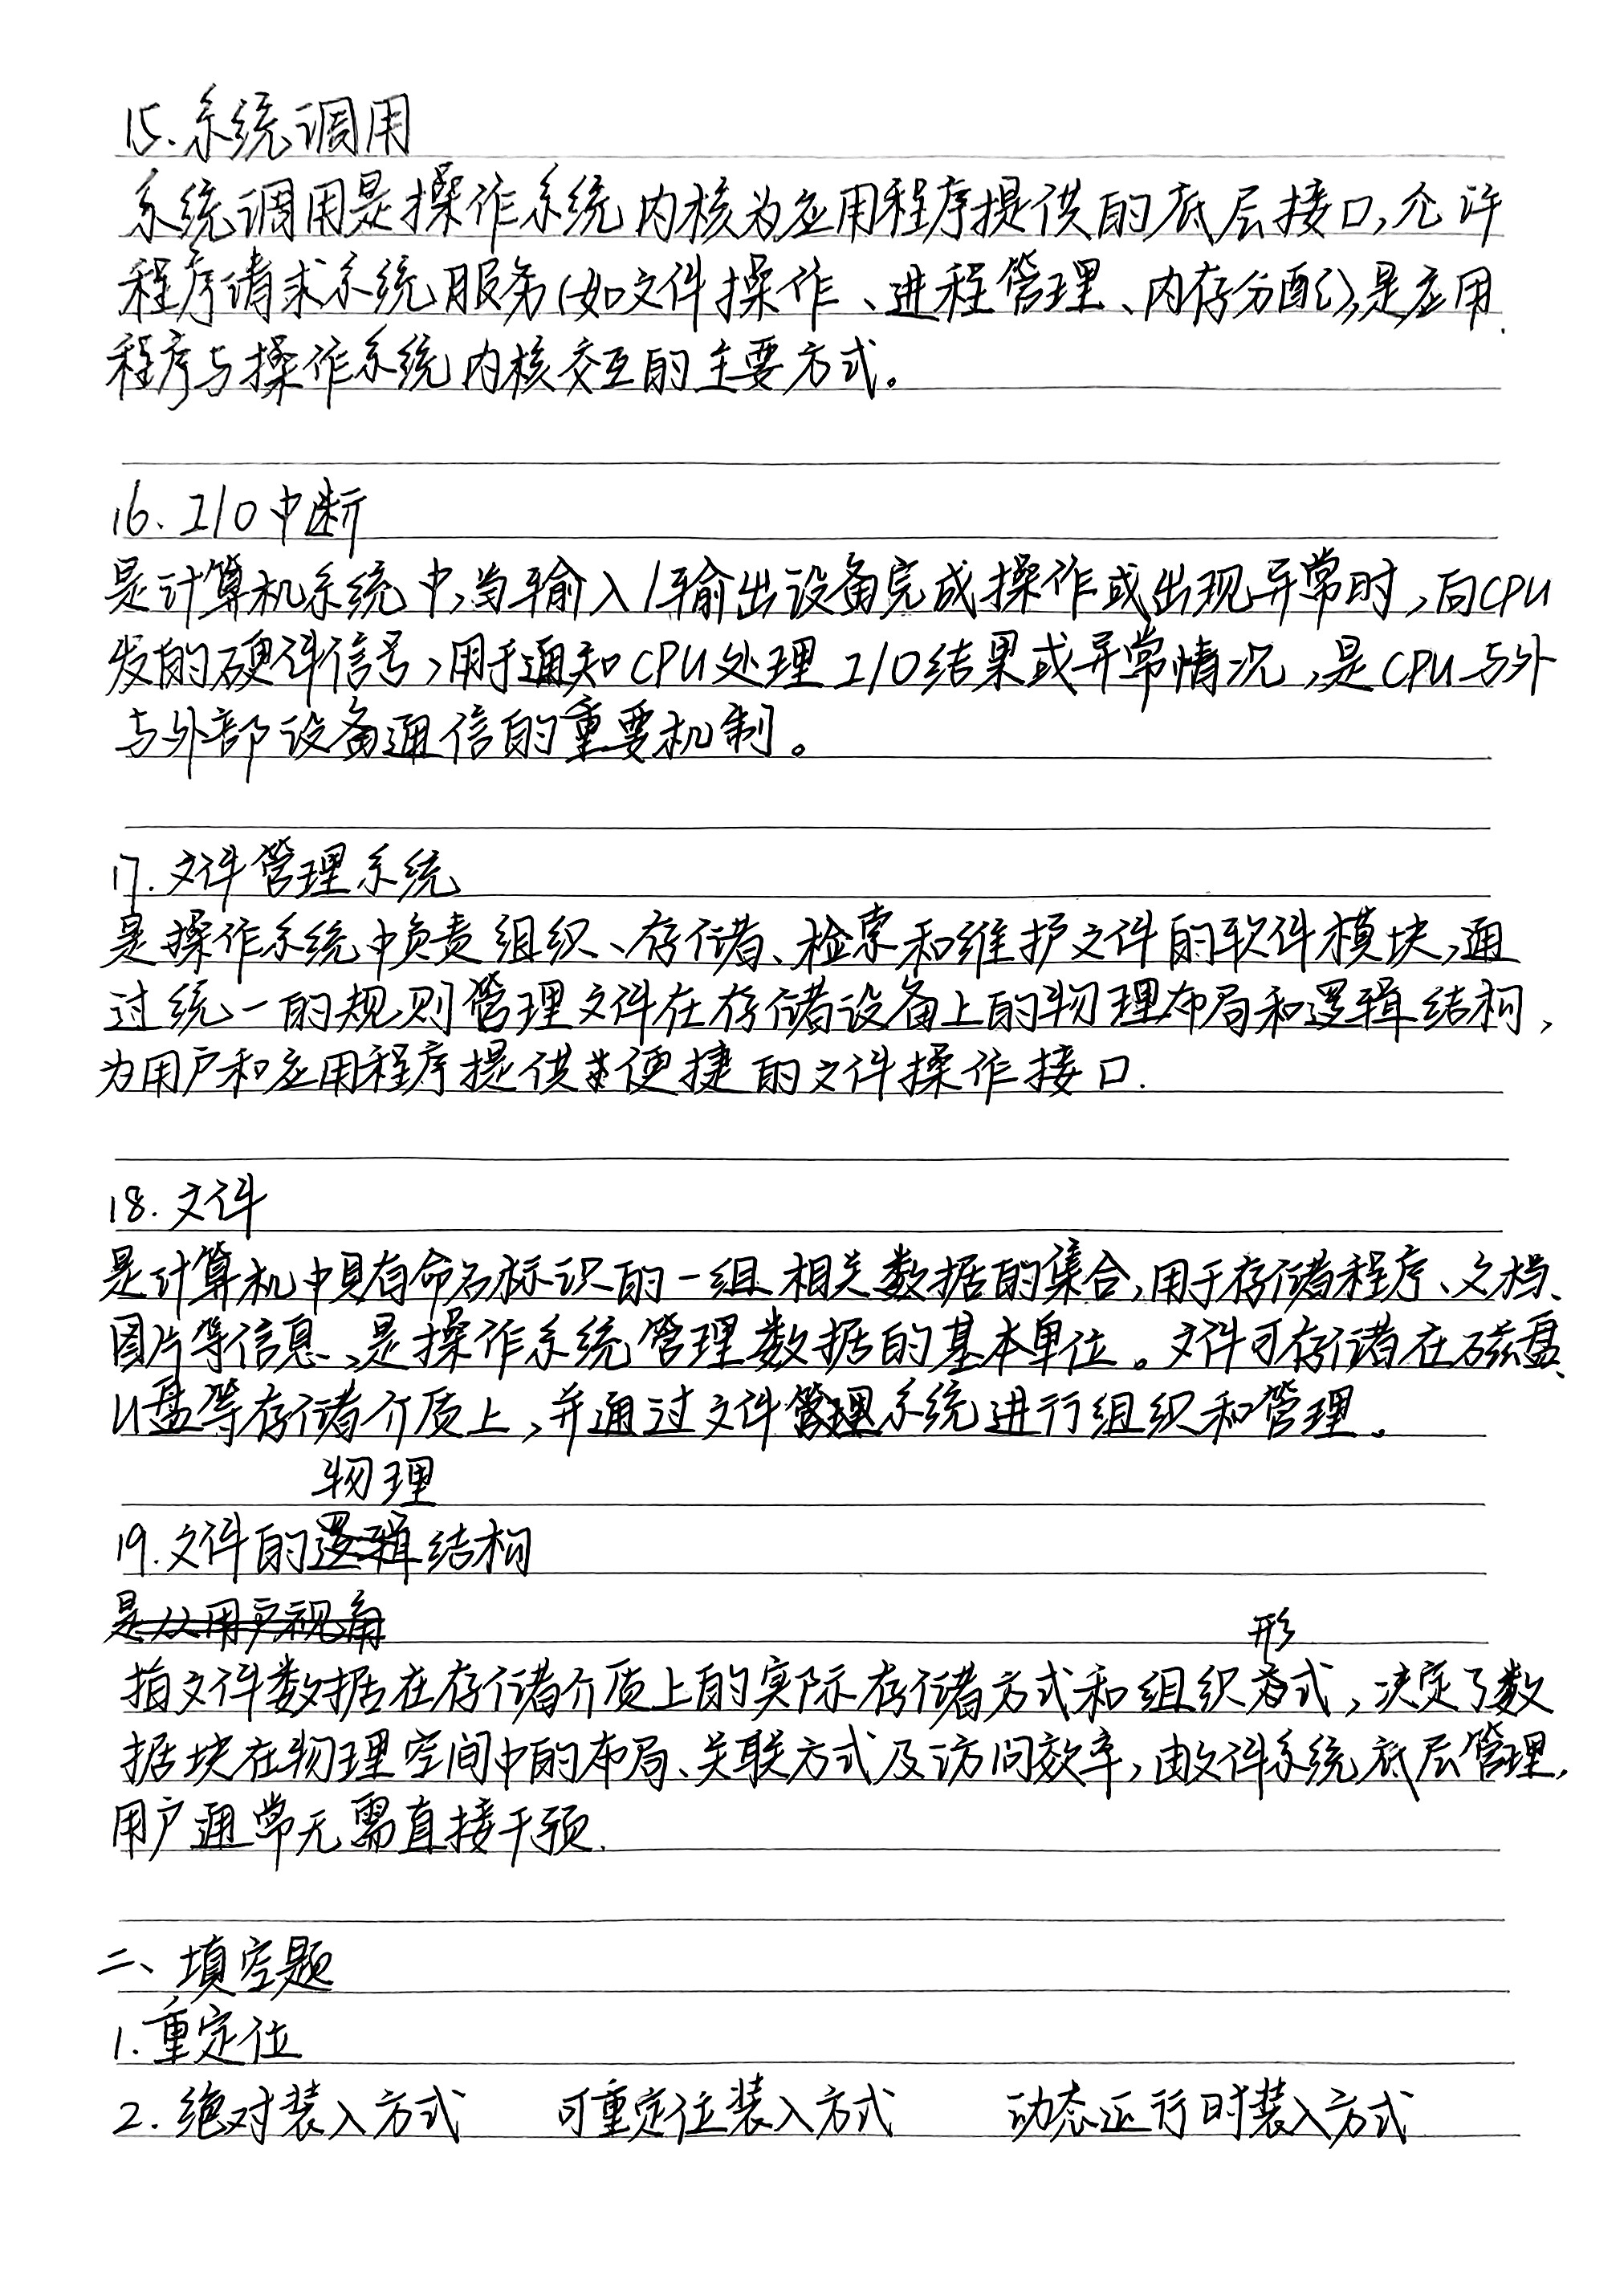 15.系统调用
系统调用是操作系统内核为应用程序提供的底层接口,允许
程序请求系统服务(如文件操作、进程管理、内存分配),是应用
程序与操作系统内核交互的主要方式。
16.I/O中断
是计算机系统中,当输入/输出设备完成操作或出现异常时,向CPU
发的硬件信号,用于通知CPU处理I/O结果或异常情况,是CPU与外
与外部设备通信的重要机制。
17.文件管理系统
是操作系统中负责组织、存储、检索和维护文件的软件模块,通
过统一的规则管理文件在存储设备上的物理布局和逻辑结构,
为用户和应用程序提供便捷的文件操作接口.
18.文件
是计算机中具有命名标识的一组相关数据的集合,用于存储程序、文档、
图片等信息、是操作系统管理数据的基本单位。文件可存储在磁盘、
U盘等存储介质上,并通过文件管理系统进行组织和管理。
物理
19.文件的逻辑结构
是从用户视角
形
指文件数据在存储介质上的实际存储方式和组织式,决定了数
据块在物理空间中的布局、关联方式及访问效率,由文件系统底层管理,
用户通常无需直接干预.
二、填空题
1.重定位
2.绝对装入方式 可重定位装入方式 动态运行时装入方式